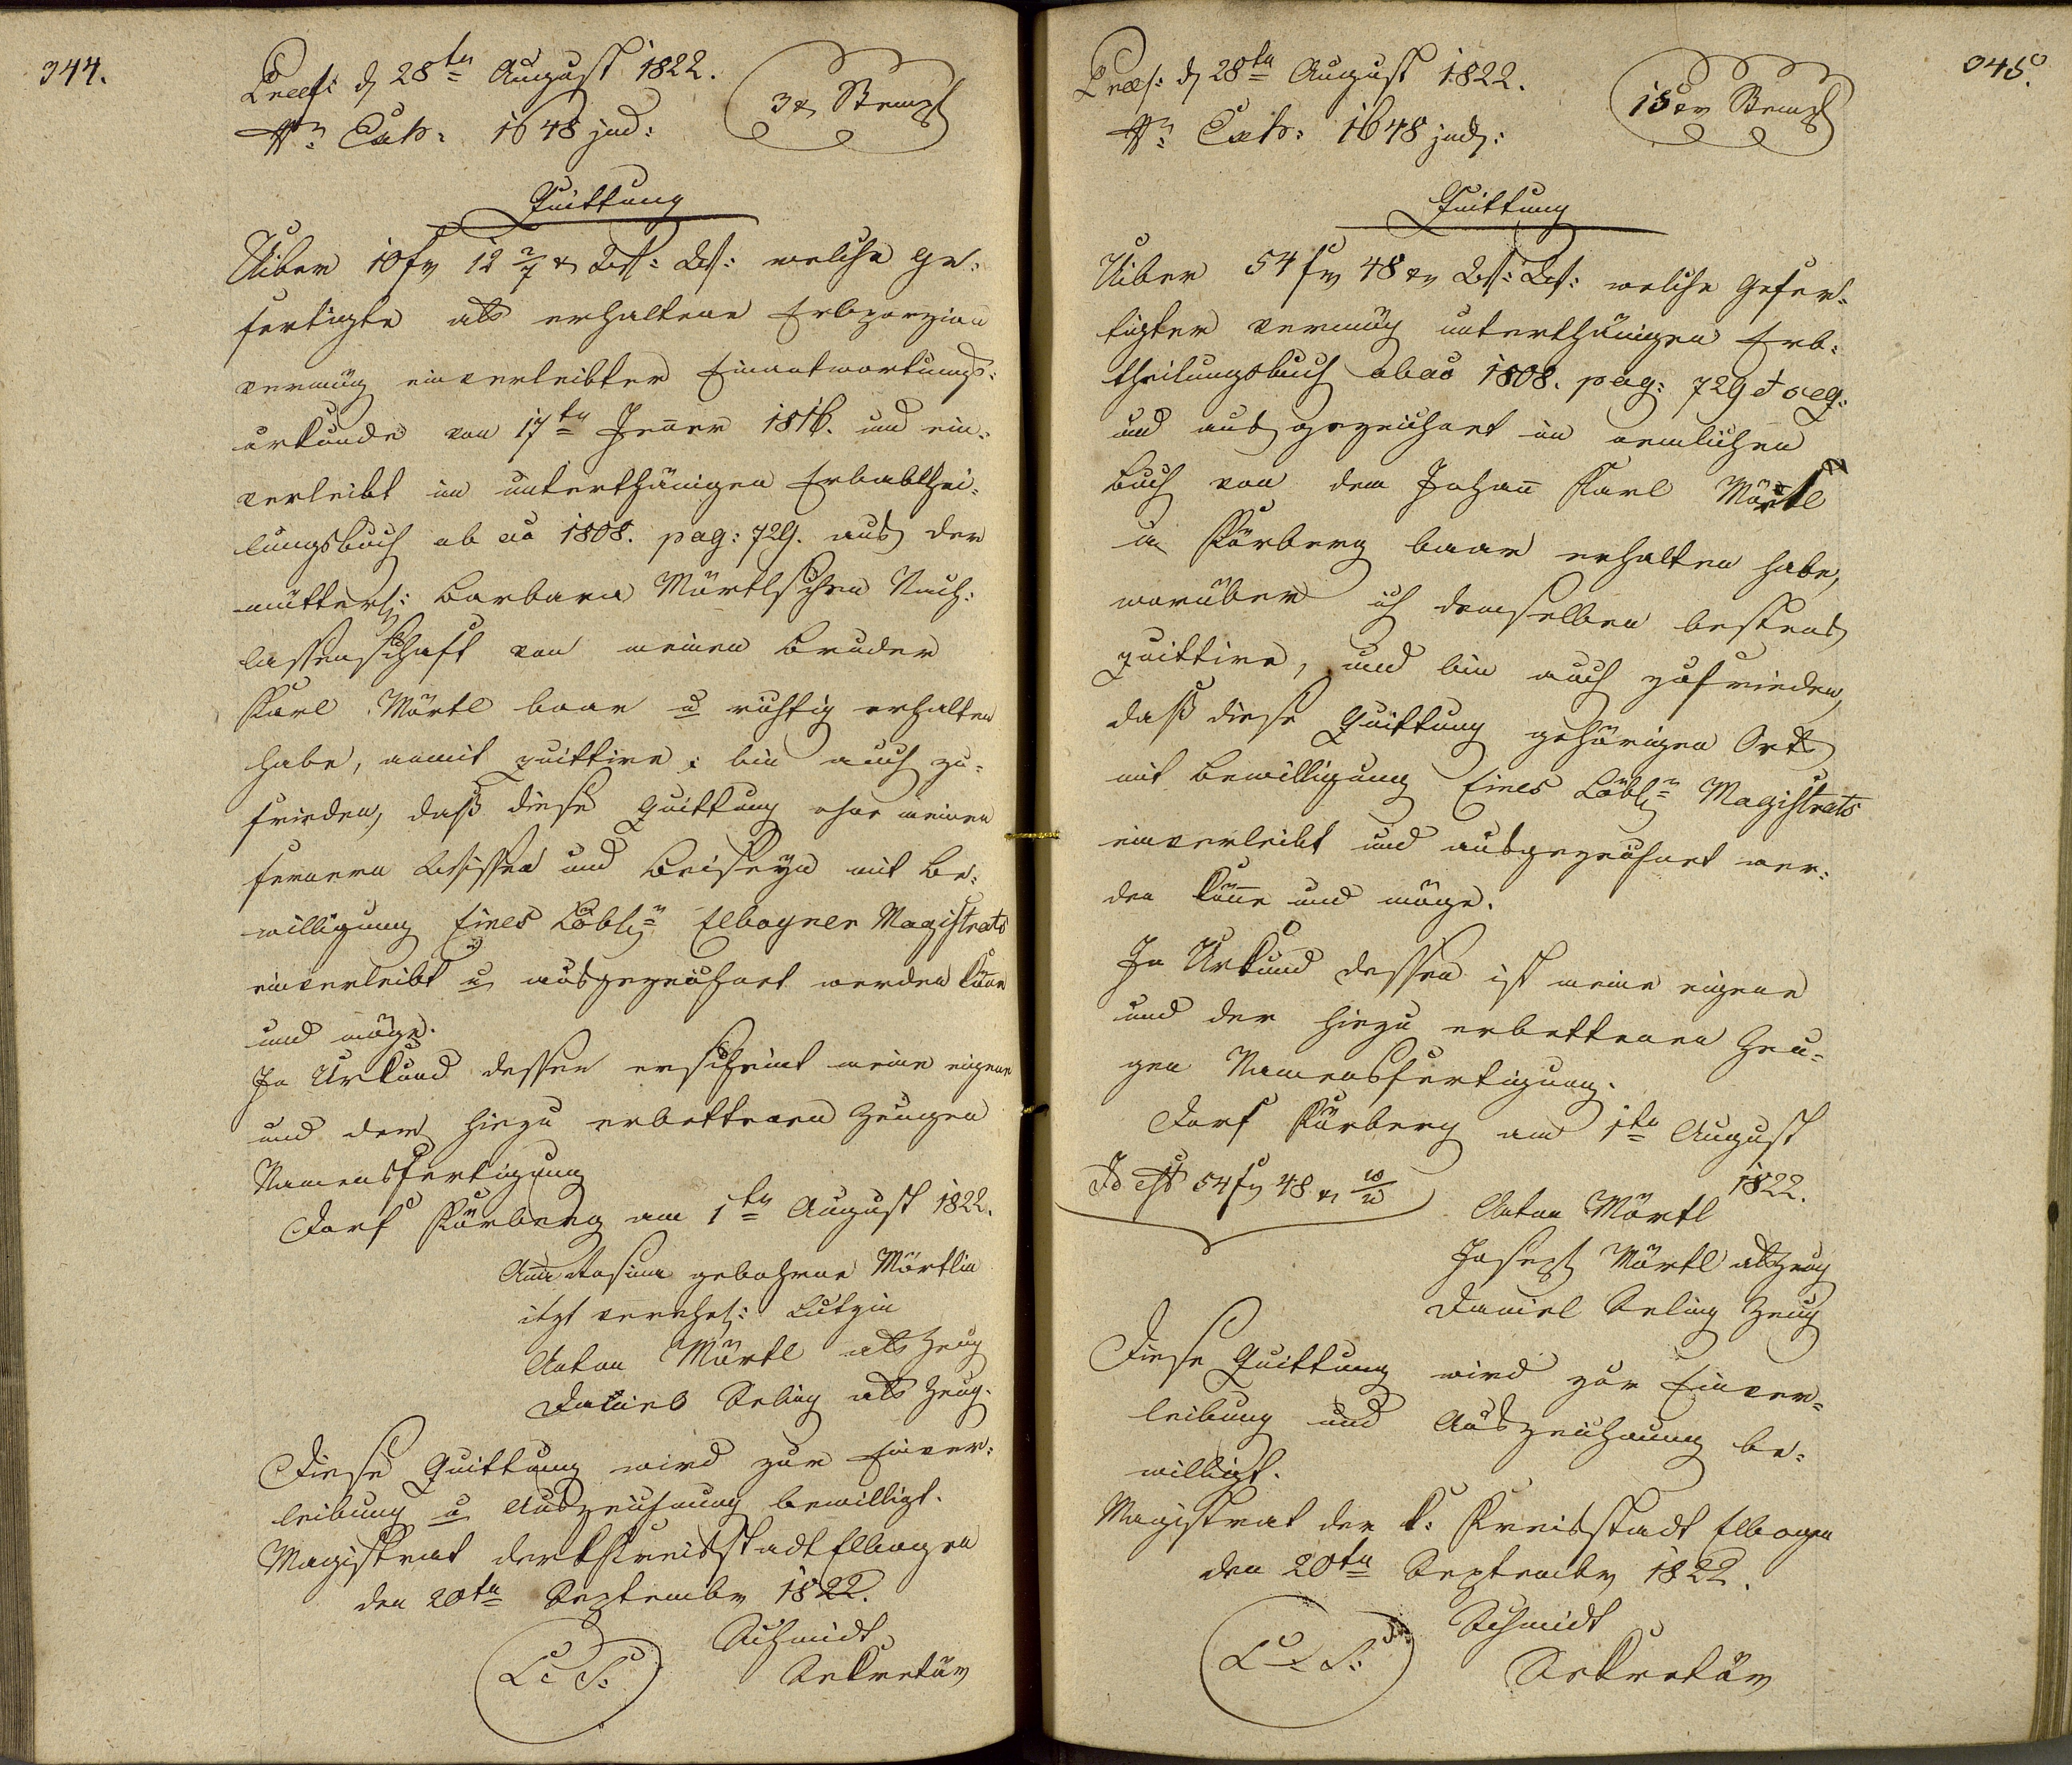 344.
Præs: d 28ten August 1822.
3 xr Stempf
Nr: Exh: 1648 jud:
Quittung
Uiber 10 fr 12 2/7 xr W: W: welche Ge¬
fertigte als erhaltene Erbporzion
vermög einverleibter Einantwortungs¬
urkunde von 17ten Jener 1816. und ein¬
verleibt im unterthänigen Erbabthei¬
lungsbuch ab ao 1808. pag: 729. aus der
mütterl: Barbara Mörtlschen Nach¬
lassenschaft von meinen Bruder
Karl Mörtl baar u richtig erhalten
habe, anmit quittire; bin auch zu¬
frieden, daß diese Quittung ohne meinen
fernern Wissen und Beiseyn mit Be¬
willigung Eines Löbln Elbogner Magistrats
einverleibt u ausgezeichnet werden köne
und möge.
In Urkund dessen erscheint meine eigene
und der hiezu erbettenen Zeugen
Namensfertigung
Dorf Körberg am 1ten August 1822.
Anna Rosina gebohrne Mörtlin
itzt verehel: Lutzin
Anton Mörtl als Zeug
Daniel Seling als Zeug.
Diese Quittung wird zur Einver¬
leibung u Auszeichnung bewilligt.
Magistrat der k Kreisstadt Elbogen
den 20ten Septembr 1822.
L. S:
Schmidt
Sekretär
345.
Præs: d 28ten August 1822.
15 xr Stempf
Nr: Exh: 1648 jud:
Quittung
Uiber 54 fr 48 xr W: W: welche Gefer¬
tigter vermög unterthänigen Erb¬
theilungsbuch ab ao 1808. pag: 729 et seq:
und ausgezeichnet im nemlichen
Buch von dem Johañ Karl Mörtl
in Körberg baar erhalten habe,
worüber ich demselben bestens
quittire, und bin auch zufrieden,
daß diese Quittung gehörigen Orts
mit Bewilligung Eines Löbln Magistrats
einverleibt und ausgezeichnet wer¬
den köñe und möge.
In Urkund dessen ist meine eigene
und der hiezu erbettenen Zeu¬
gen Namensfertigung.
Dorf Körberg am 1ten August
1822.
Id est 54 fr 48 xr W/W
Anton Mörtl
Joseph Mörtl als Zeug
Daniel Seling Zeug
Diese Quittung wird zur Einver¬
leibung und Auszeichnung be¬
willigt.
Magistrat der k: Kreisstadt Elbogen
den 20ten Septembr 1822.
L. S:
Schmidt
Sekretär